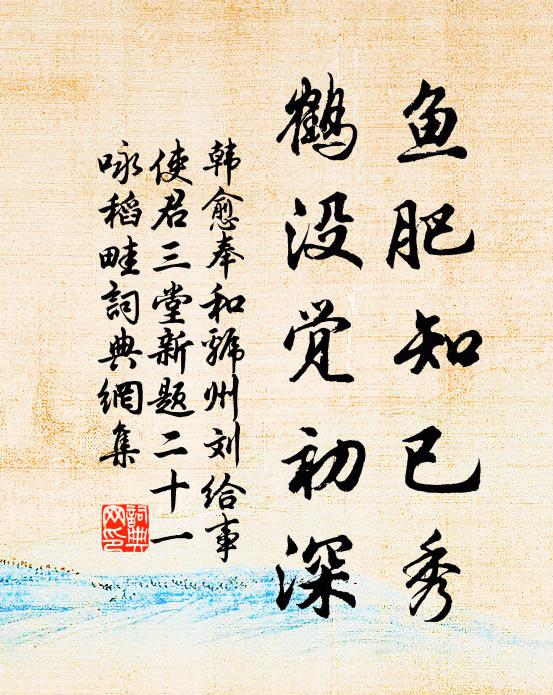 鱼肥知已秀
鹤没觉初深
韩愈奉和虢州刘给事
使君三堂新题二十一
咏稻畦詞典網集
詞典
网印